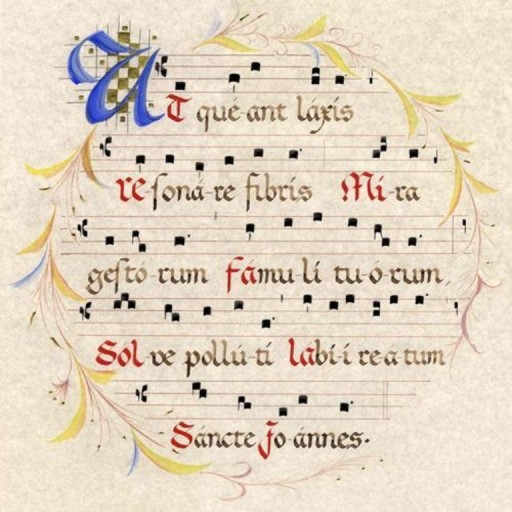 UT qué-ant láxis
re-soná-re fibris Mi-ra
gesto-rum fámu-lí tu-ó-rum,
Sol ve pollú-tí labí-i re-a-tum
Sáncte Jo-ánnes.